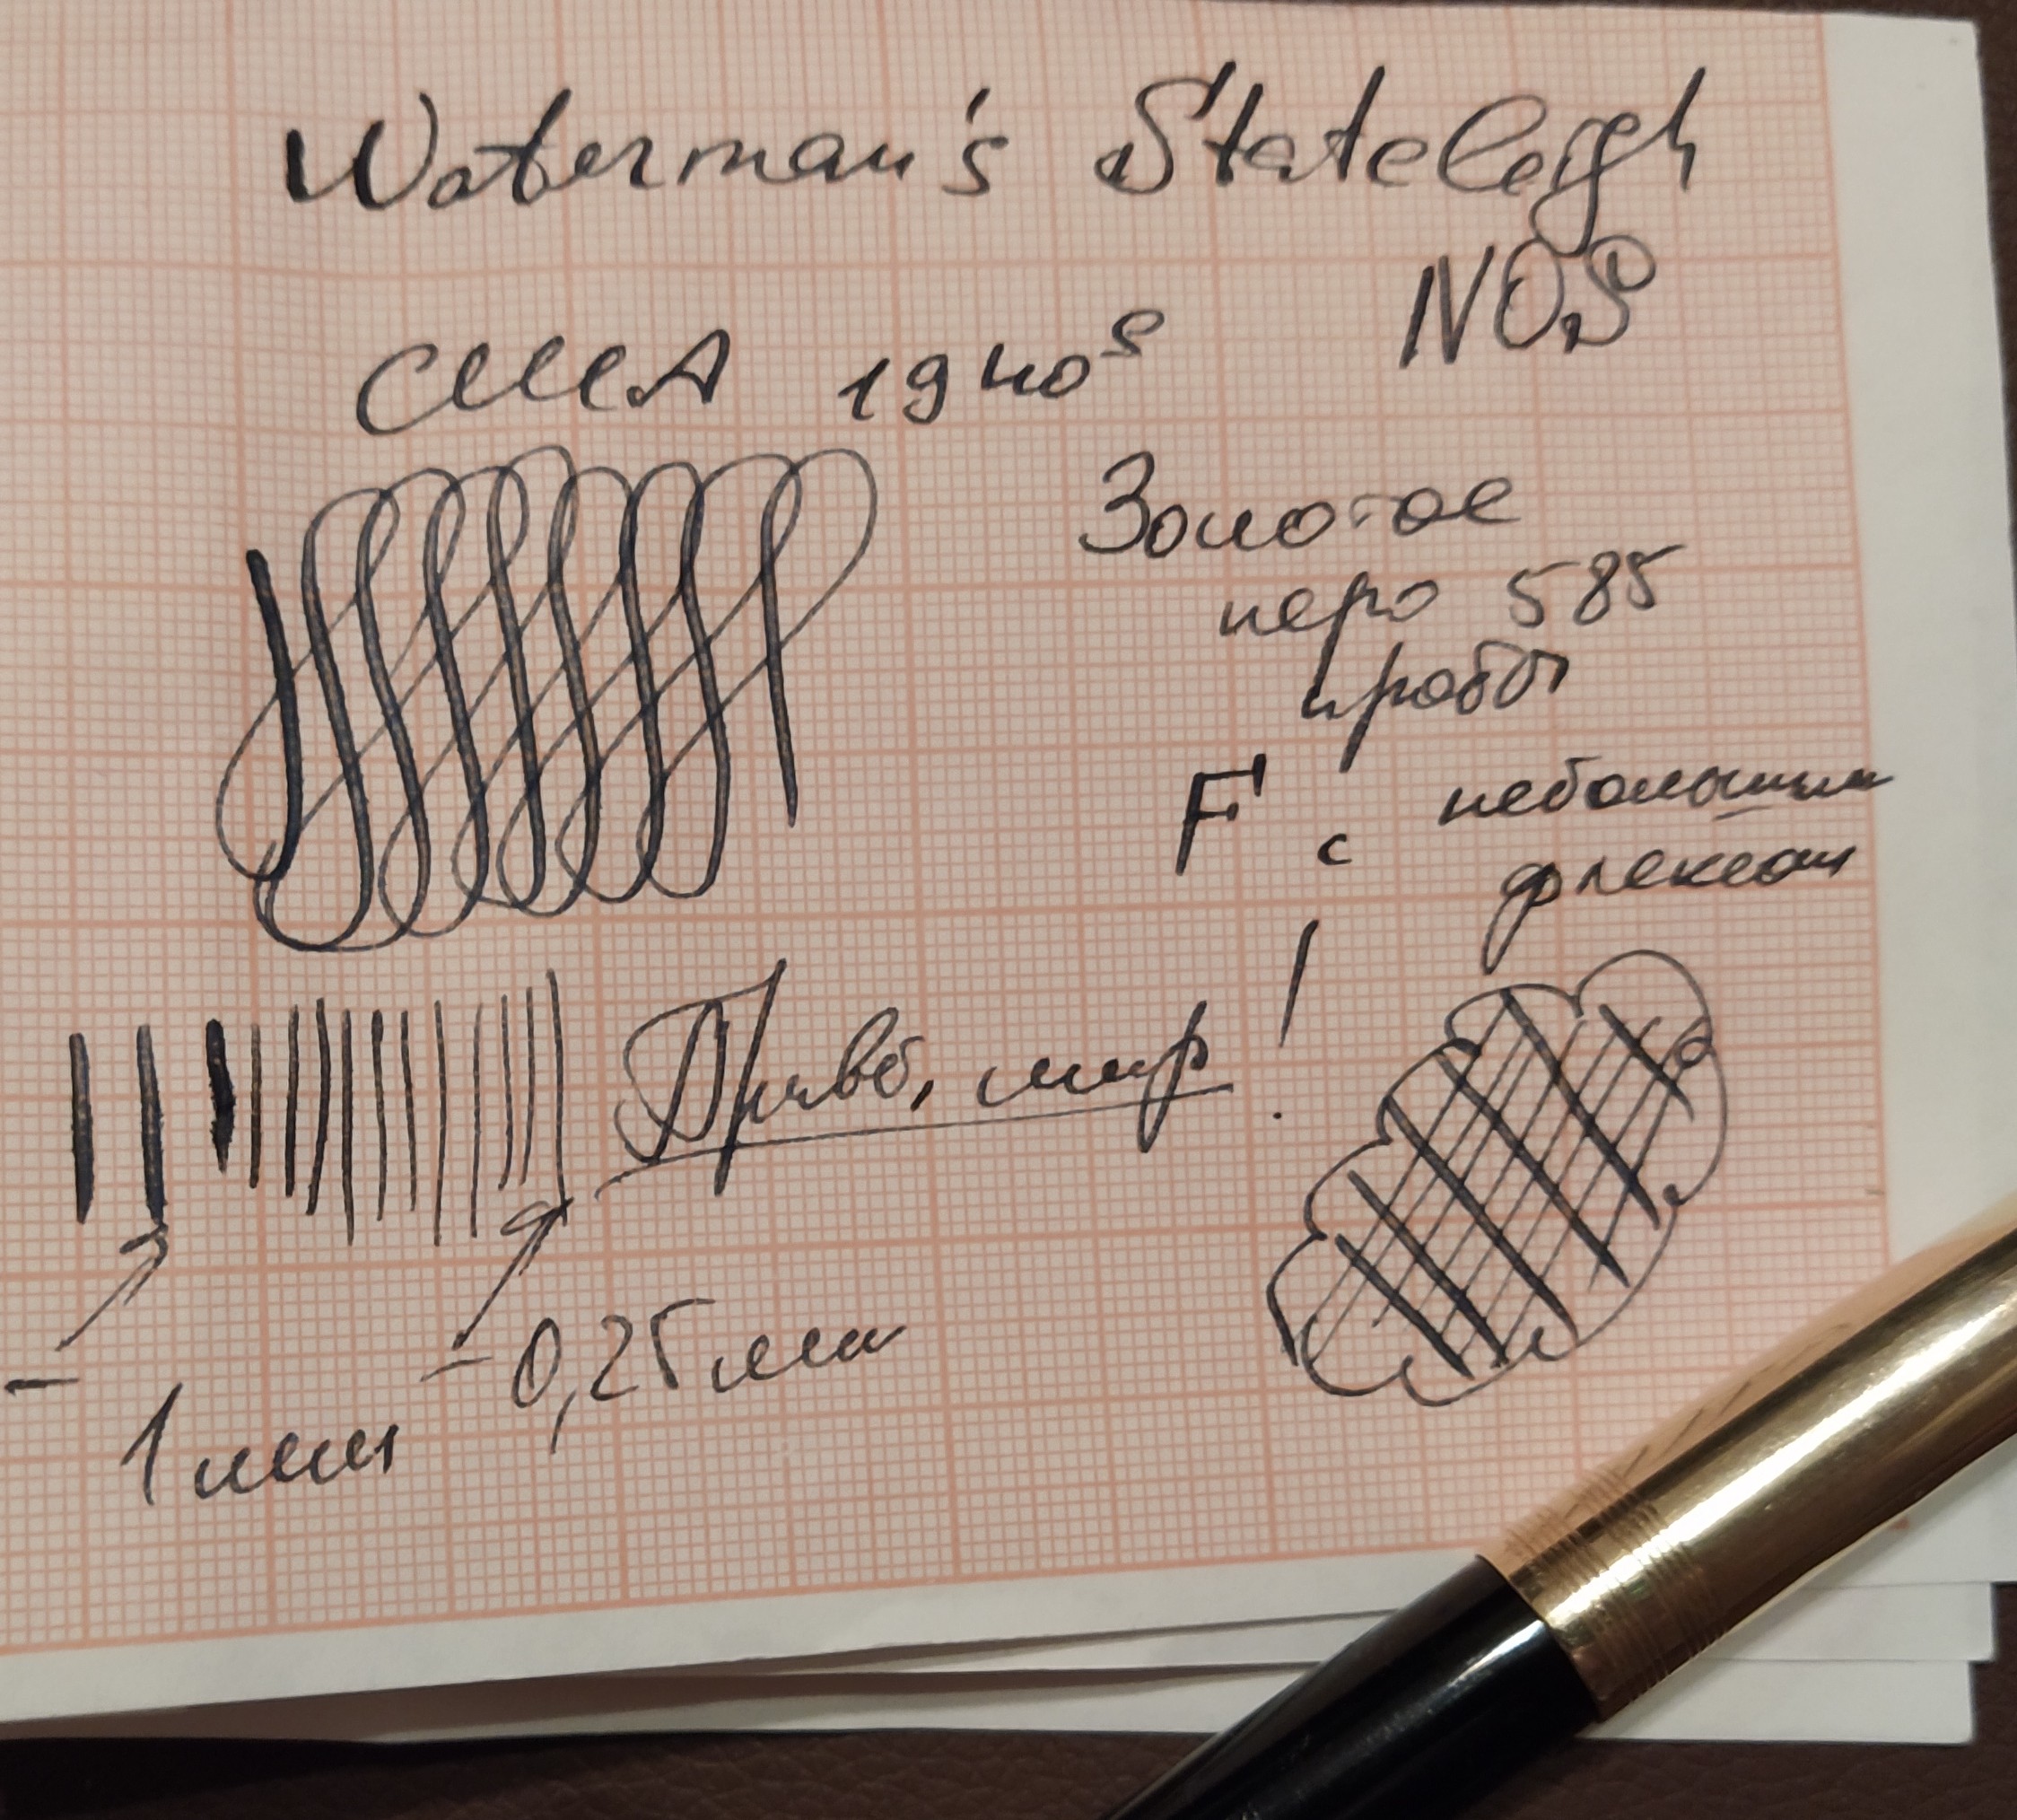 Waterman's Stateleigh
NOS
США 1940s
Золотое
перо 585
пробы
F с небольшим
флексом
Привет, мир!
- 1 мм
- 0,25 мм